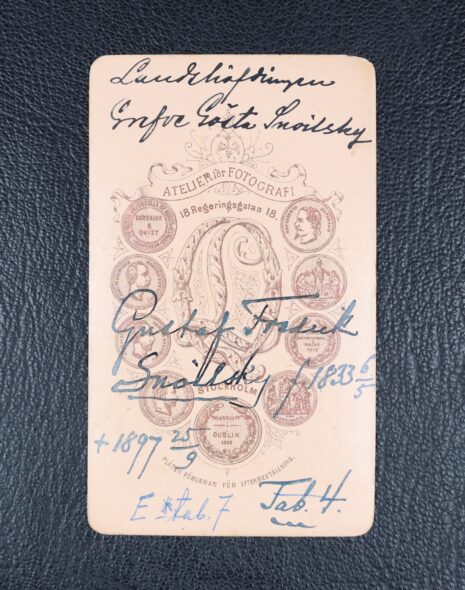 Landshöfdingen
Grefve Gösta Snoilsky
ATELIER för FOTOGRAFI
18 Regeringsgatan 18.
EURENIUS
&
QUIST
Gustaf Fredrik
Snoilsky f 1833 6/5
STOCKHOLM
+ 1897 25/9
DUBLIN
1865
PLÅTEN FÖRVARAS FÖR EFTERBESTÄLLNING.
E * tab. 7 Tab. 4.